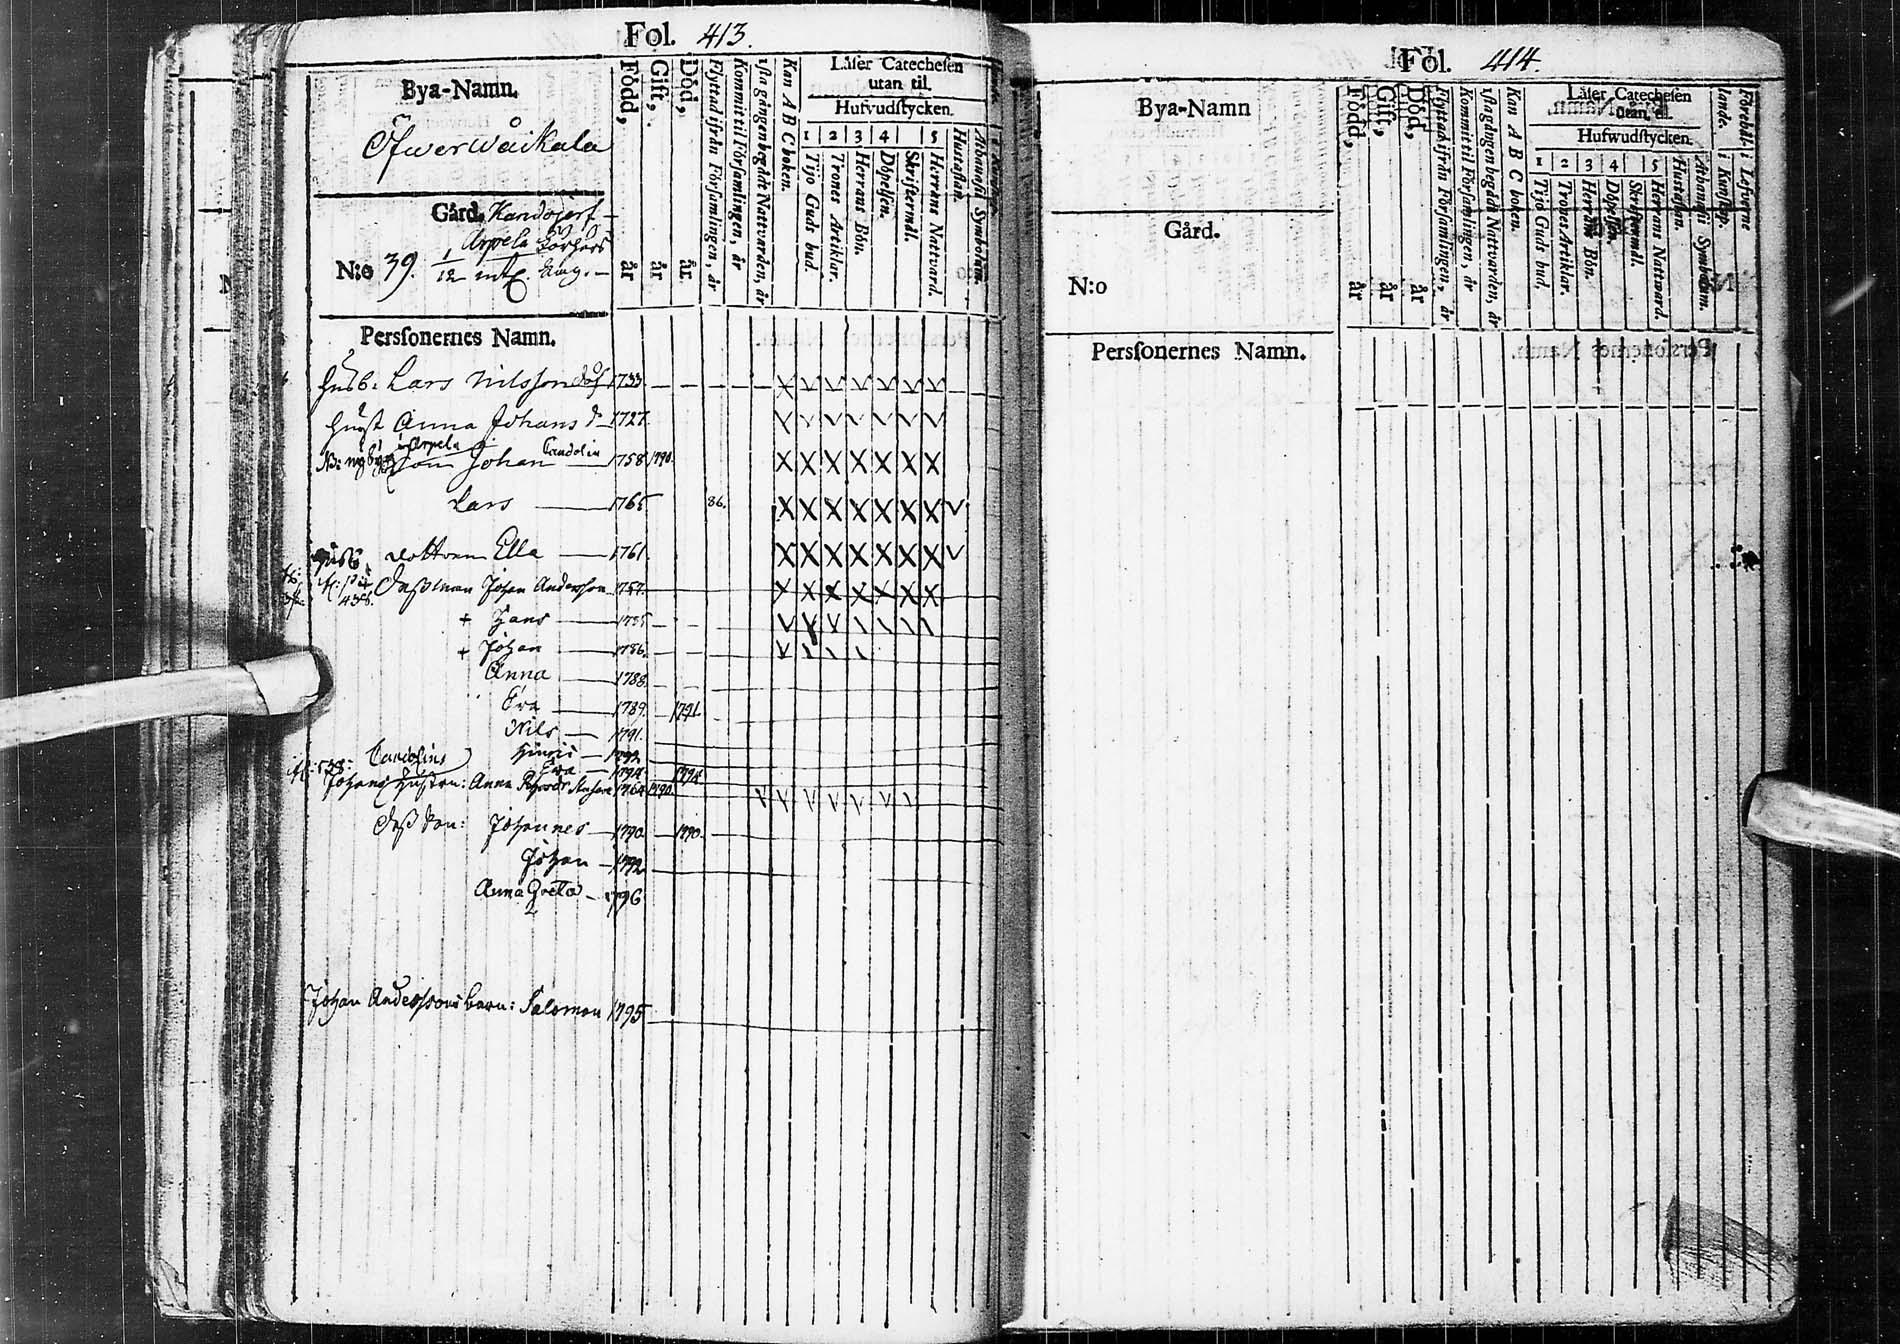 Fol. 413.
Bya-Namn.
Öfwerwåikala
Gård. Kandojerf
Arpela
N:o 39. 1/12 mtl.
Född, år
Gift, år
Död, år.
Flyttad ifrån Församlingen, år
Kommit til Församlingen, år
1sta gången begådt Nattvarden, år
Kan A B C boken.
Låser Catechesen
utan til.
Hufvudstycken.
1 2 3 4 5
Tijo Guds bud.
Trones Artiklar.
Herrans Bön.
Döpelsen.
Skriftermål.
Herrans Nattvard.
Hustaflan.
Athanasii Symbolum.
Personernes Namn.
Husb: Lars Nilsson 1733.
Hust Anna Johans d:r 1727.
Arpela Candolin
Son Johan 1758 1790.
Lars 1765 86.
dottren Ella 1761.
438.
Johan Andersson 1757.
+ Hans 1785
+ Johan 1786.
Anna 1788.
Eva 1789. 1791
Nils 1791.
Candolins
Hinric 1792
Eva 1794. 1794
Johans Hustru: Anna 1764 1790.
Johannes 1790 1790.
Johan 1792
Anna Greta 1796
Johan Anderssons barn: Salomon 1795
Fol. 414.
Bya-Namn
Gård.
N:o
Född, år
Gift, år
Död, år
Flyttad ifrån Församlingen, år
Kommit til Församlingen, år
1sta gången begådt Nattvarden, år
Kan A B C boken.
Låser Catechesen
utan til.
Hufwudstycken.
1 2 3 4 5
Tijo Guds bud.
Trones Artiklar.
Herrans Bön.
Döpelsen.
Skriftermål.
Herrans Nattward.
Hustaflan.
Athanasii Symbolum.
i Kunskap.
i Lefwerne
Personernes Namn.